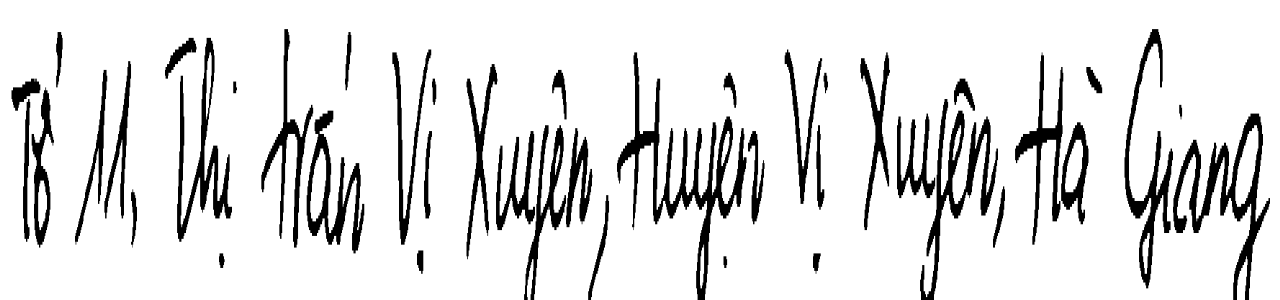 Tổ 11, Thị trấn Vị Xuyên, Huyện Vị Xuyên, Hà Giang